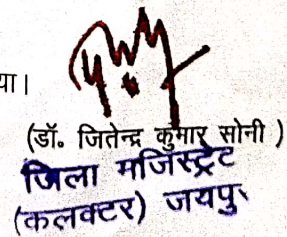 या।
(डॉ. जितेन्द्र कुमार सोनी )
जिला मजिस्ट्रेट
(कलक्टर) जयपुर